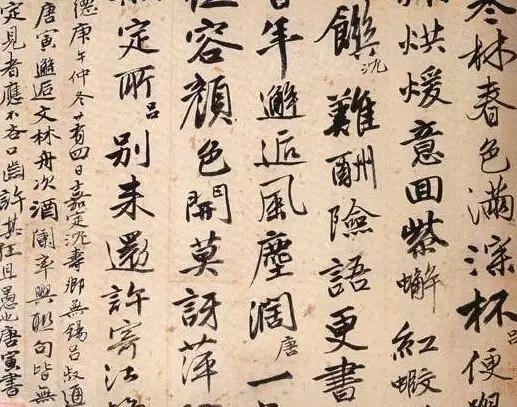 林春色滿深杯呂便
烘煖意回紫蠏紅蝦
饌沈難酬險語更書
年邂逅風塵濶唐一
容顏色開莫訝萍
定所呂别来還許寄江
德庚午仲冬廿有四日嘉定沈壽卿無錫呂叔通
唐寅邂逅文林舟次酒闌率興聯句皆無
定見者應不吝口齒許其狂且愚也唐寅書